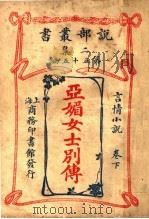 說部叢書
言情小說 卷下
亞媚女士別傳
上海商務印書館發行